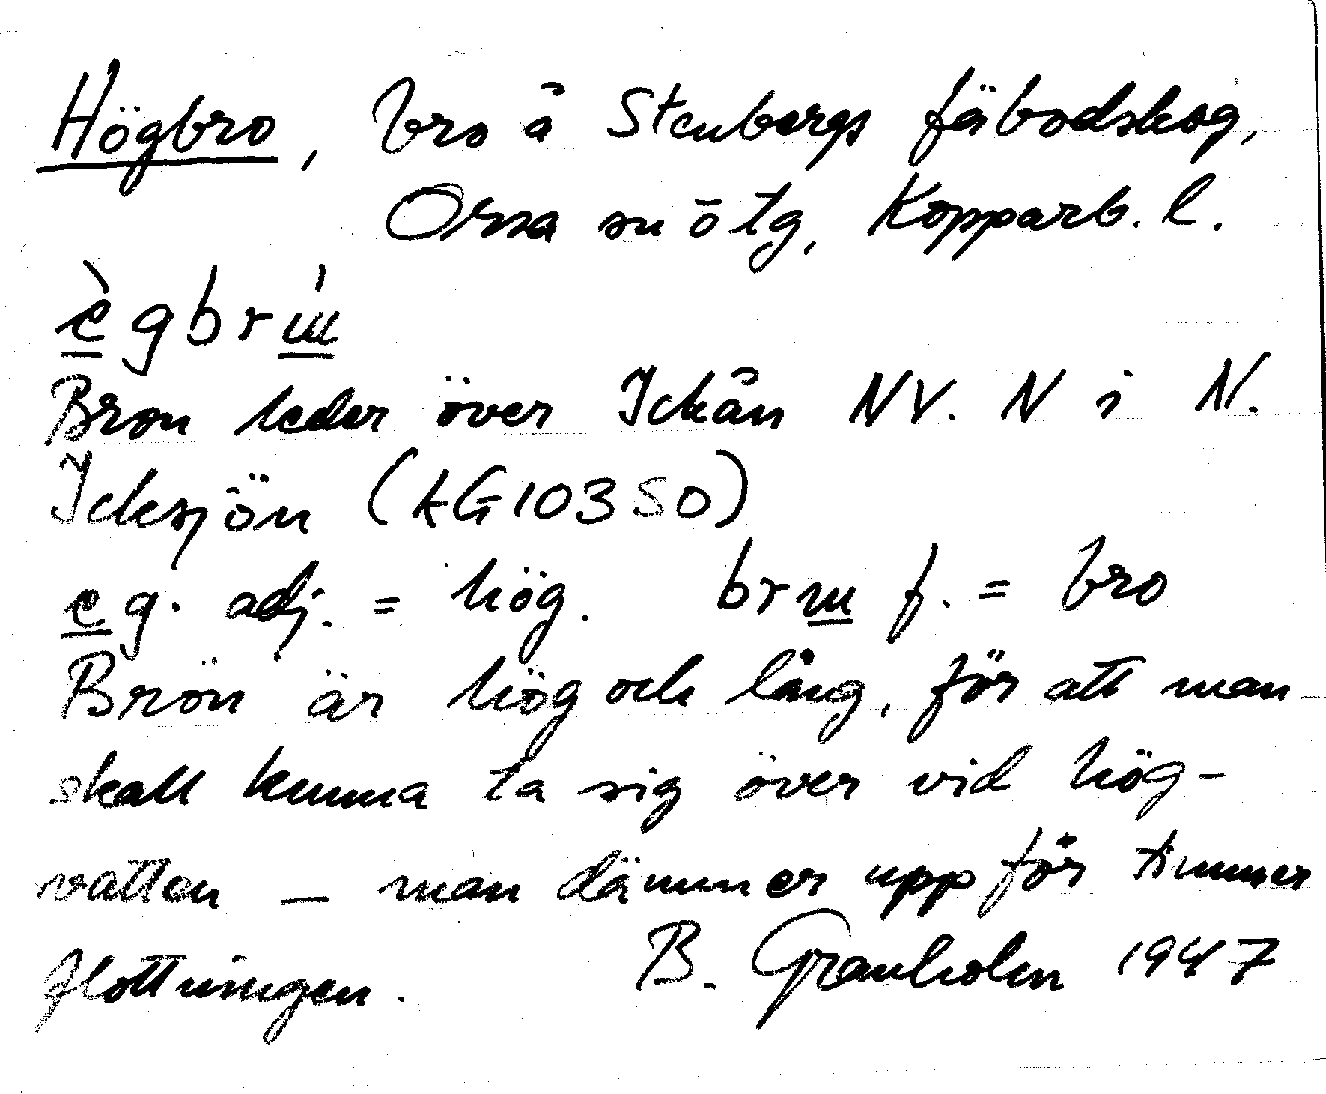 Högbro, bro å Stenbergs fäbodskog,
Orsa sn ö tg, Kopparb. l.
ègbrɯ́
Bron leder över Ickån NV. N i N.
Icksjön (kG10350)
eg. adj. = hög. brɯ f. = bro
Bron är hög och lång, för att man
skall kunna ta sig över vid hög-
vatten – man dämmer upp för timmer
flottningen. B. Granholm 1947